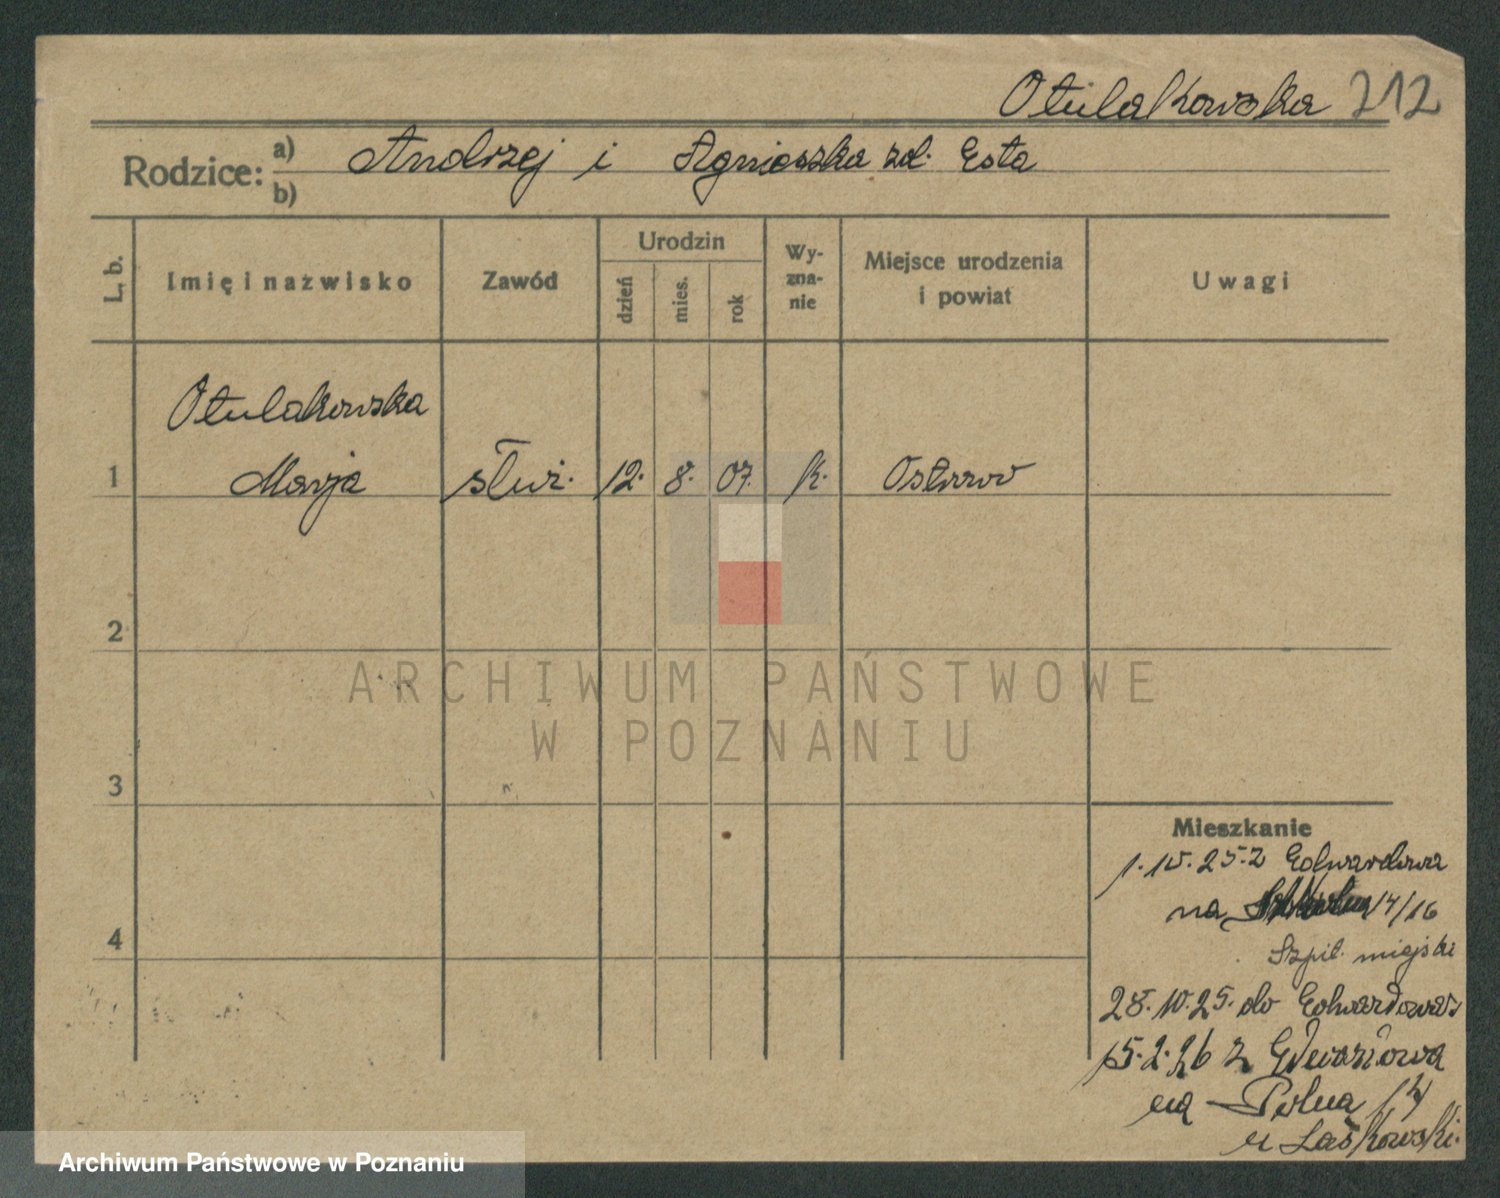 Otulakowska 212
Rodzice: a) Andrzej i Agnieszka zd. Esta
b)
L. b.
Imię i nazwisko
Zawód
Urodzin
dzień
mies.
rok
Wy-
zna-
nie
Miejsce urodzenia
i powiat
Uwagi
Otulakowska
1 Marja służ. 12. 8. 07. k. Ostrow
2
3
4
Mieszkanie
1.10.25. z Edwardowa
na 14/16
Szpit. miejski
28.10.25. do Edwardowa
15.2.26 z Edwardowa
na Polna 14
u Laskowski.
ARCHIWUM PAŃSTWOWE
W POZNANIU
Archiwum Państwowe w Poznaniu